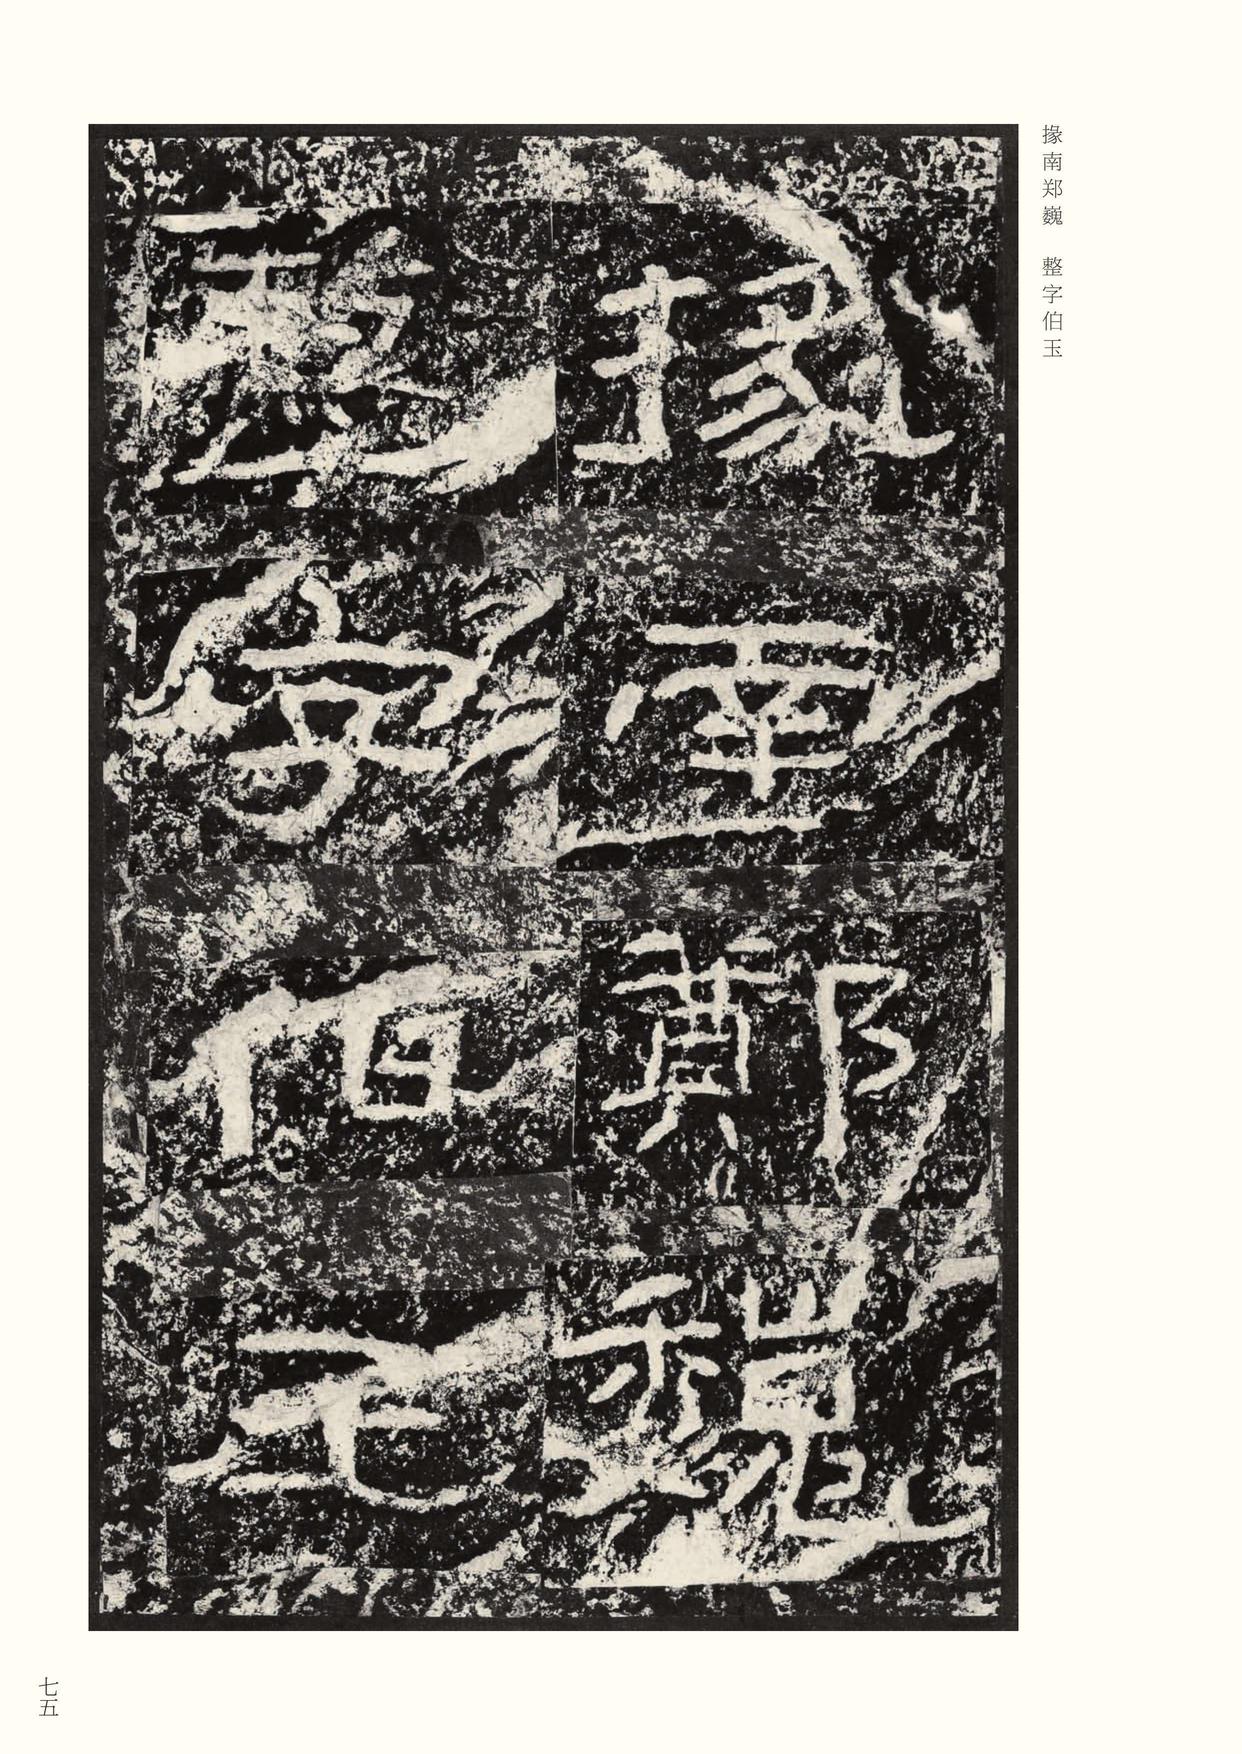 掾南郑巍　整字伯玉
掾南鄭巍
整字伯玉
七五